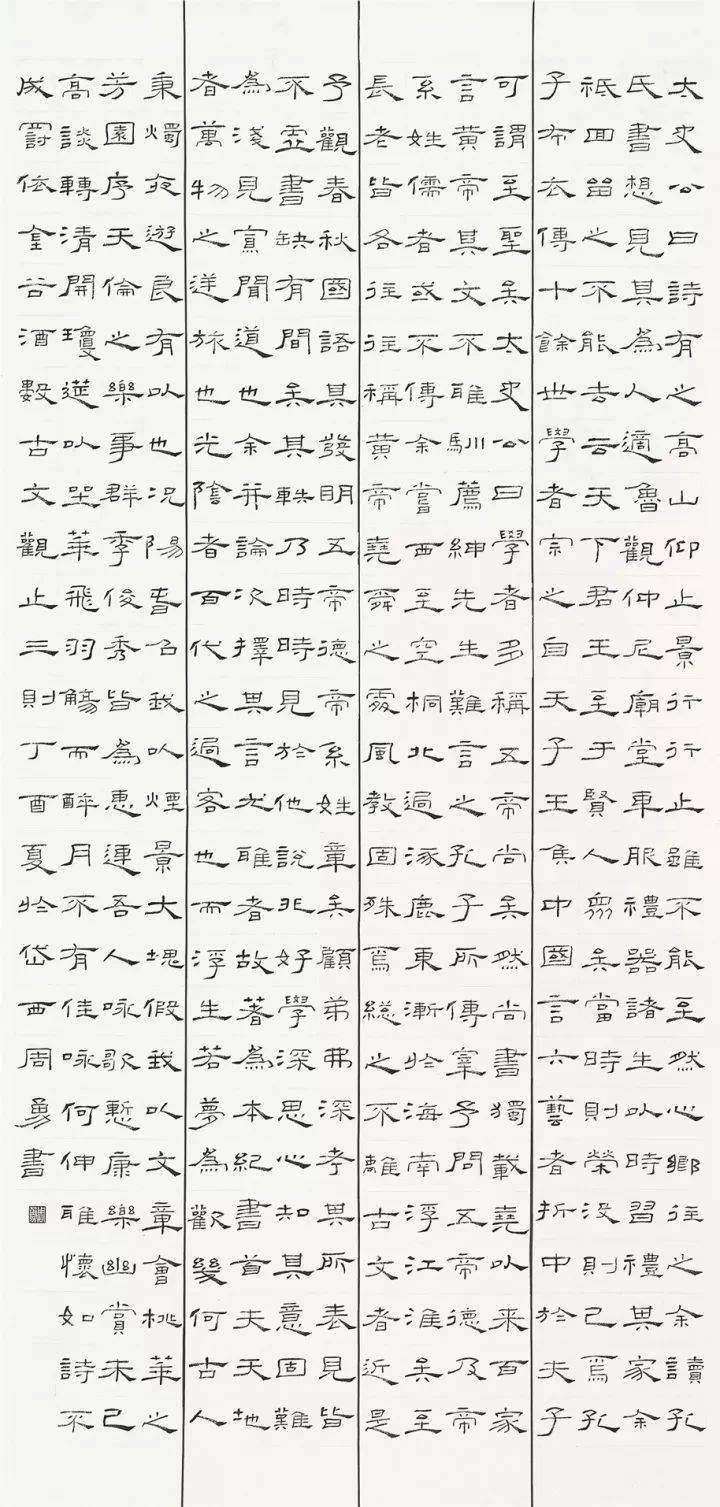 太史公曰詩有之高山仰止景行行止雖不能至然心鄉往之余讀孔
氏書想見其為人適魯觀仲尼廟堂車服禮器諸生以時習禮其家余
祗回留之不能去云天下君王至于賢人眾矣當時則榮沒則已焉孔
子布衣傳十餘世學者宗之自天子王侯中國言六藝者折中於夫子
可謂至聖矣太史公曰學者多稱五帝尚矣然尚書獨載堯以来百家
言黃帝其文不雅馴薦紳先生難言之孔子所傳宰予問五帝德及帝
系姓儒者或不傳余嘗西至空桐北過涿鹿東漸於海南浮江淮矣至
長老皆各往往稱黃帝堯舜之處風教固殊焉總之不離古文者近是
予觀春秋國語其發明五帝德帝系姓章矣顧弟弗深考其所表見皆
不虛書缺有間矣其軼乃時時見於他說非好學深思心知其意固難
為淺見寡聞道也余并論次擇其言尤雅者故著為本紀書首夫天地
者萬物之逆旅也光陰者百代之過客也而浮生若夢為歡幾何古人
秉燭夜遊良有以也況陽春召我以煙景大塊假我以文章會桃華之
芳園序天倫之樂事群季俊秀皆為惠連吾人咏歌慙康樂幽賞未已
高談轉清開瓊筵以坐華飛羽觴而醉月不有佳咏何伸雅懷如詩不
成罰依金谷酒數古文觀止三則丁酉夏於岱西周勇書